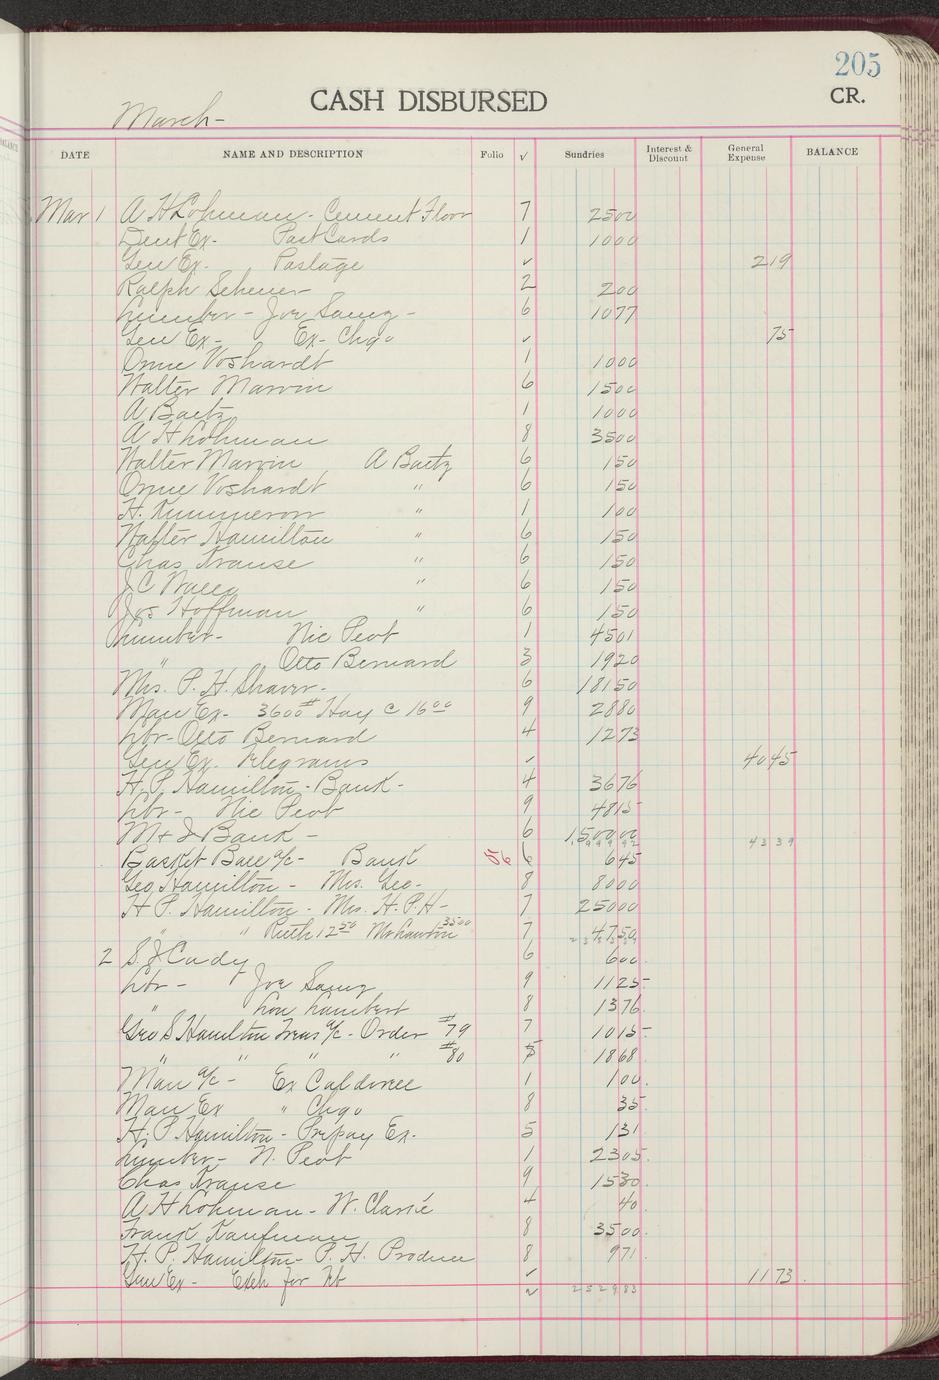 205
CASH DISBURSED
CR.
March -
DATE NAME AND DESCRIPTION Folio √ Sundries Interest & Discount General Expense BALANCE
Mar 1 A H Lohman - Cement Floor 7 2500
Dent Ex- Post Cards 1 1000
Gen Ex. Postage ✓ 219
Ralph Scheuer 2 200
Lumber - Joe Samz - 6 1077
Gen Ex- Ex- Chgo ✓ 75
Orme Voshardt 1 1000
Walter Marvin 6 1500
A Baetz 1 1000
A H Lohman 8 3500
Walter Marvin A Baetz 6 150
Orme Voshardt " 6 150
H. " 1 100
Walter Hamilton " 6 150
Chas Krause " 6 150
J C " 6 150
Jos Hoffman " 6 150
Lumber- Nic Peot 1 4501
" Otto Bernard 3 1920
Mrs. P. H. Shaver- 6 18150
Man Ex- 3600# Hay @ 16 00 9 2880
Lbr- Otto Bernard 4 1273
Gen Ex. Telegrams ✓ 4045
H. P. Hamilton - Bank - 4 3676
Lbr- Nic Peot 9 4815
M & J Bank - 6 150000
4339
Basket Ball a/c- Bank 56 6 645
Geo. Hamilton - Mrs. Geo- 8 8000
H P. Hamilton - Mrs. H. P. H- 7 25000
" " Ruth 12 50 3500 7 4750
2 S. J. Cady 6 600
Lbr - Joe Samz 9 1125
" Lou Lambert 8 1376
Geo S Hamilton Treas a/c - Order #79 7 1015
" " " " #80 5 1868
Man a/c - Ex Caldonee 1 100
Man Ex " Chgo 8 35
H. P Hamilton - Prepay Ex. 5 131
Lumber- N. Peot 1 2305
Chas Krause 9 1530
A H Lohman - W. Clark 4 40
Frank Kaufman 8 3500
H. P. Hamilton - P. H. Produce 8 971
Gen Ex - Exch for ✓ 1173
✓ 252983